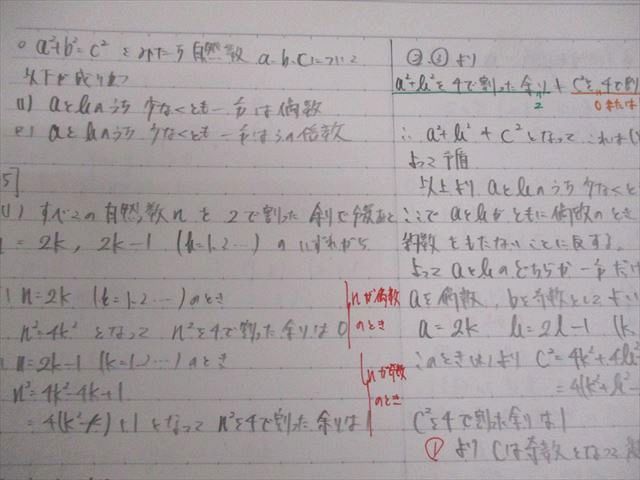 ○ a²+b²=c² をみたす自然数 a.b.cについて
以下が成り立つ
(1) aとbのうち少なくとも一方は偶数
aとbのうち少なくとも一方は3の倍数
(1) すべての自然数nを2で割った余りで
= 2k, 2k-1 (k=1,2…) のいずれか
n=2k (k=1,2…) のとき
n²=4k² となって n²を4で割った余りは0
nが偶数
のとき
n=2k-1 (k=1,2…) のとき
n²=4k²-4k+1
= 4(k²-k)+1 となって n²を4で割った余りは1
nが奇数
のとき
より
a²+b²を4で割った余り ≠ c²を4で割
2
0または
∴ a²+b² ≠ c² となって これは
よって矛盾
以上より aとbのうち少なくと
ここで aとbが ともに偶数のとき
約数をもたないことに反する。
よって aとbのどちらか一方だけ
aを偶数, bを奇数としてよい
a=2k b=2l-1 (k.
このとき(1)より c²=4k²+4l²
=4(k²+l²
c²を4で割った余りは1
①より cは奇数となって